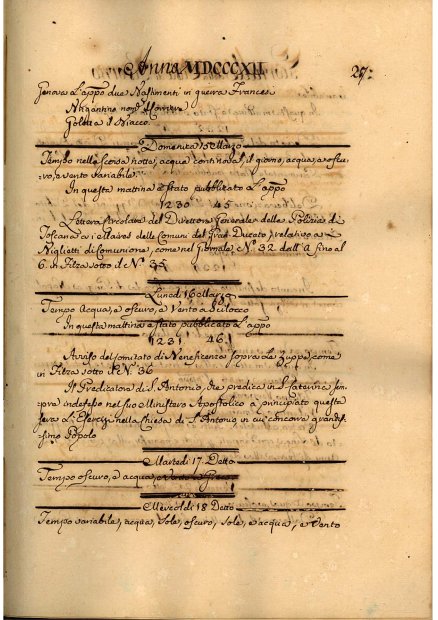 Anno MDCCCXII
27:
Genova l'appo due Bastimenti in guerra Francesi
Brigantino nom.
Goletta il
Domenica 15 Marzo
Tempo nella scorsa notta, acqua continova, il giorno, acqua, e oscu-
ro, e vento variabile.
In questa mattina è stato pubblicato l'appo
1230 45
Lettera Circolare del Direttore Generale della Polizia di
Toscana a i Maires delle Comuni del Gran Ducato, relativo a
Biglietti di Comunione, come nel Giornale N.° 32 dell' a fino al
6. in Filza sotto il N.° 35
Lunedi 16 Marzo
Tempo Acqua, e oscuro, e Vento a Scilocco
In questa mattina è stato pubblicato l'appo
1231 46
Avviso del Comitato di Beneficenza sopra la Zuppa, come
in Filza sotto il N.° 36
Il Predicatore di S. Antonio, che predica in S. Caterina sem-
pre indefesso nel suo Ministero Apostolico a principiato questa
sera l'Esercizi nella Chiesa di S. Antonio in cui concorre grandis-
simo Popolo
Martedi 17. Detto
Tempo oscuro, e acqua, e Vento
Mercoldi 18 Detto
Tempo variabile, acqua, Sole, oscuro, Sole, e acqua, e Vento